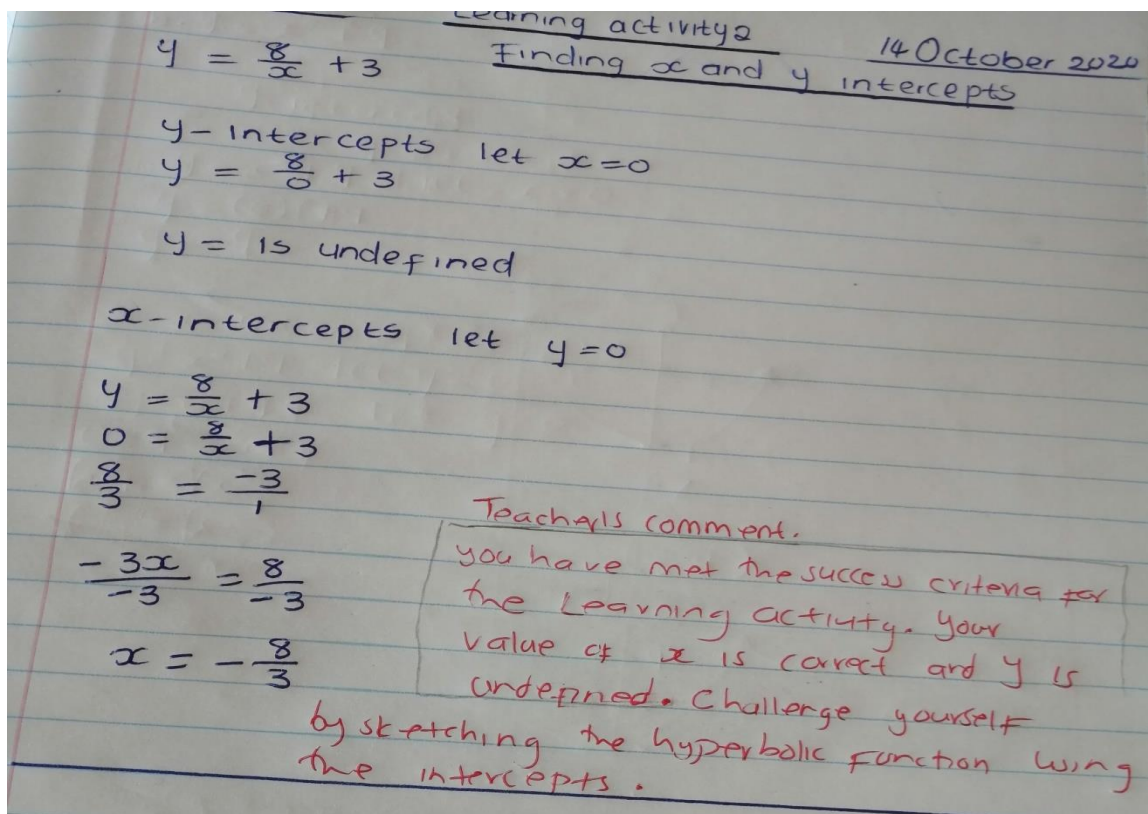 Learning activity 2
14 October 2020
Finding x and y intercepts
y = 8/x + 3
y-intercepts let x=0
y = 8/0 + 3
y = is undefined
x-intercepts let y=0
y = 8/x + 3
0 = 8/x + 3
8/3 = -3/1
-3x/-3 = 8/-3
x = -8/3
Teacher's comment.
you have met the success criteria for
the Learning activity. Your
value of x is correct and y is
undefined. Challenge yourself
by sketching the hyperbolic function using
the intercepts.